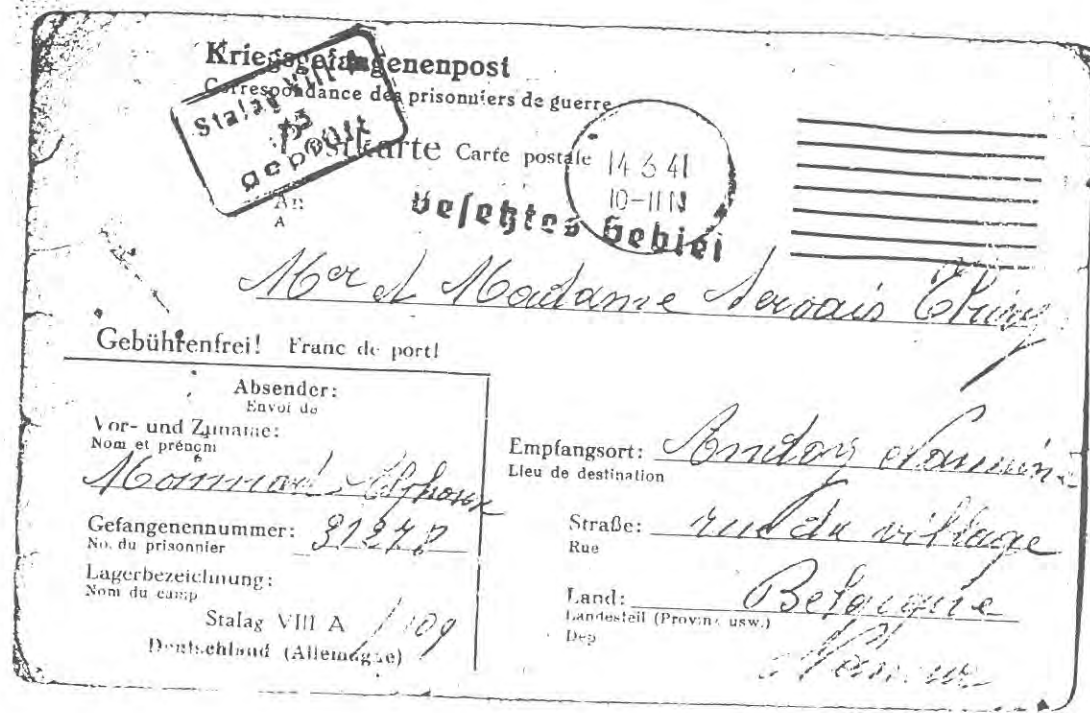 Kriegsgefangenenpost
Correspondance des prisonniers de guerre
Stalag VIII A
53
geprüft
Postkarte Carte postale
14 3 41
10-11 N
An
A
Besetztes Gebiet
Mer et Madame Servais Thiry
Gebührenfrei! Franc de port!
Absender:
Envoi de
Vor- und Zuname:
Nom et prénom
Alphonse
Gefangenennummer:
No. du prisonnier
Lagerbezeichnung:
Nom du camp
Stalag VIII A / 109
Deutschland (Allemagne)
Empfangsort:
Lieu de destination
Straße: rue du village
Rue
Land: Belgique
Landesteil (Provinz usw.)
Dep
Namur